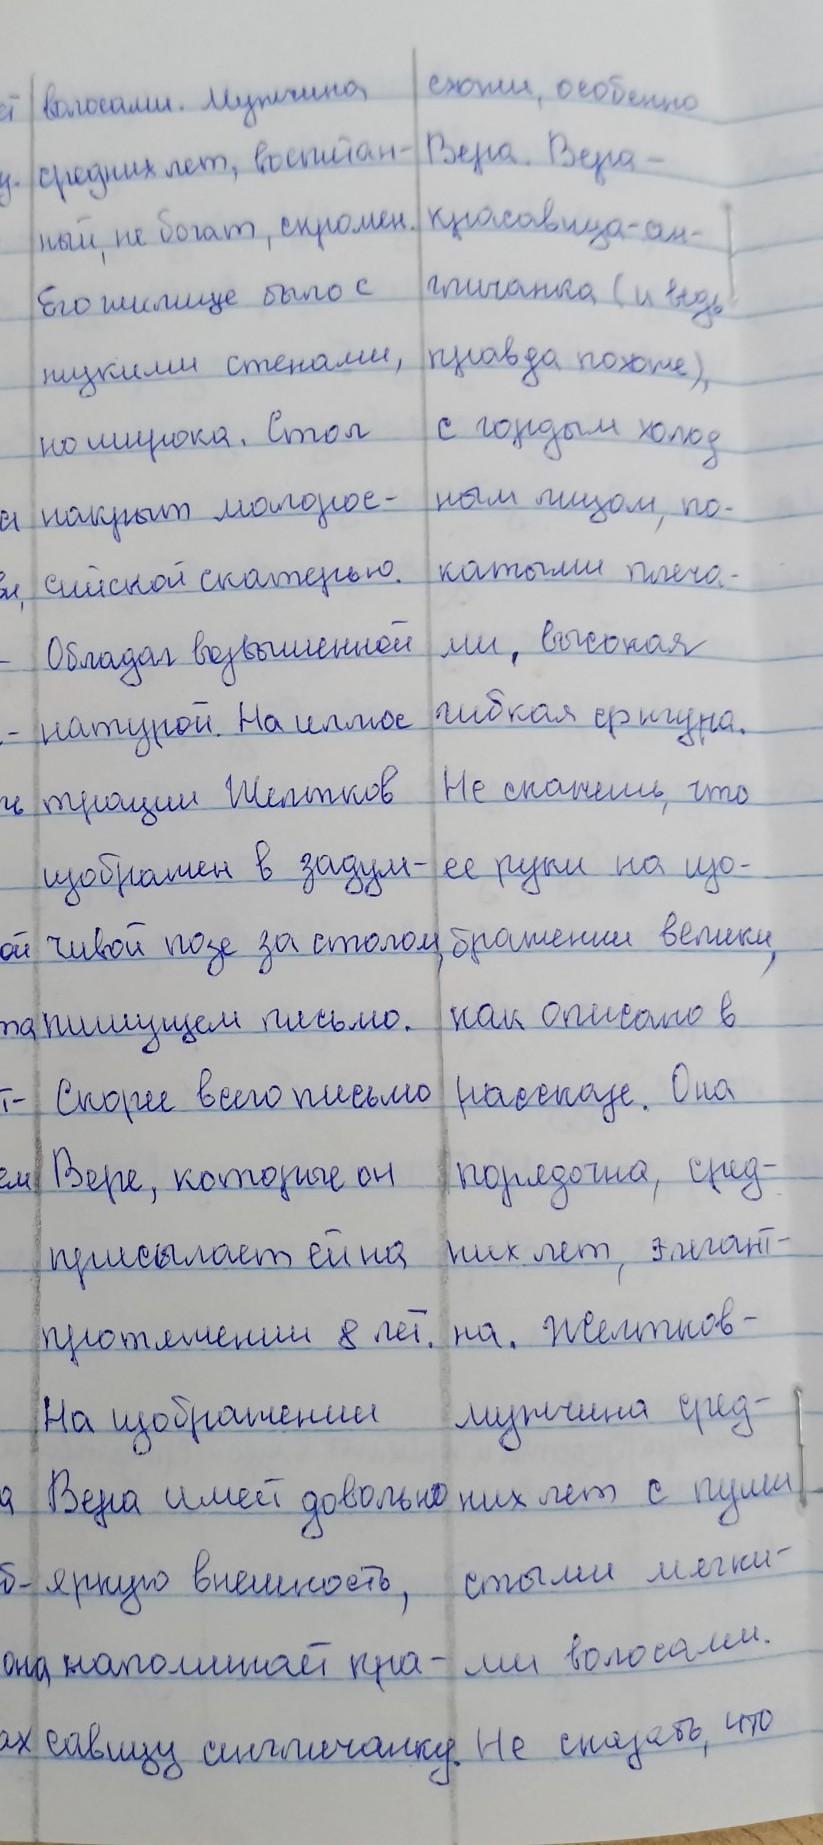 волосами. Мужчина
средних лет, воспитан-
ный, не богат, скромен.
Его жилище было с
низкими стенами,
но широка. Стол
накрыт малорос-
сийской скатертью.
Обладал возвышенной
натурой. На иллюс
трации Желтков
изображен в задум-
чивой позе за столом,
пишущем письмо.
Скорее всего письмо
Вере, которые он
присылает ей на
протяжении 8 лет.
На изображении
Вера имеет довольно
яркую внешность,
она напоминает кра-
савицу англичанку.
схожи, особенно
Вера. Вера -
красавица-ан-
гличанка (и ведь
правда похоже),
с гордым холод
ным лицом, по-
катыми плеча-
ми, высокая
гибкая фигура.
Не скажешь, что
ее руки на изо-
бражении велики,
как описано в
рассказе. Она
порядочна, сред-
них лет, элегант-
на. Желтков -
мужчина сред-
них лет с пуши
стыми мягки-
ми волосами.
Не сказать, что